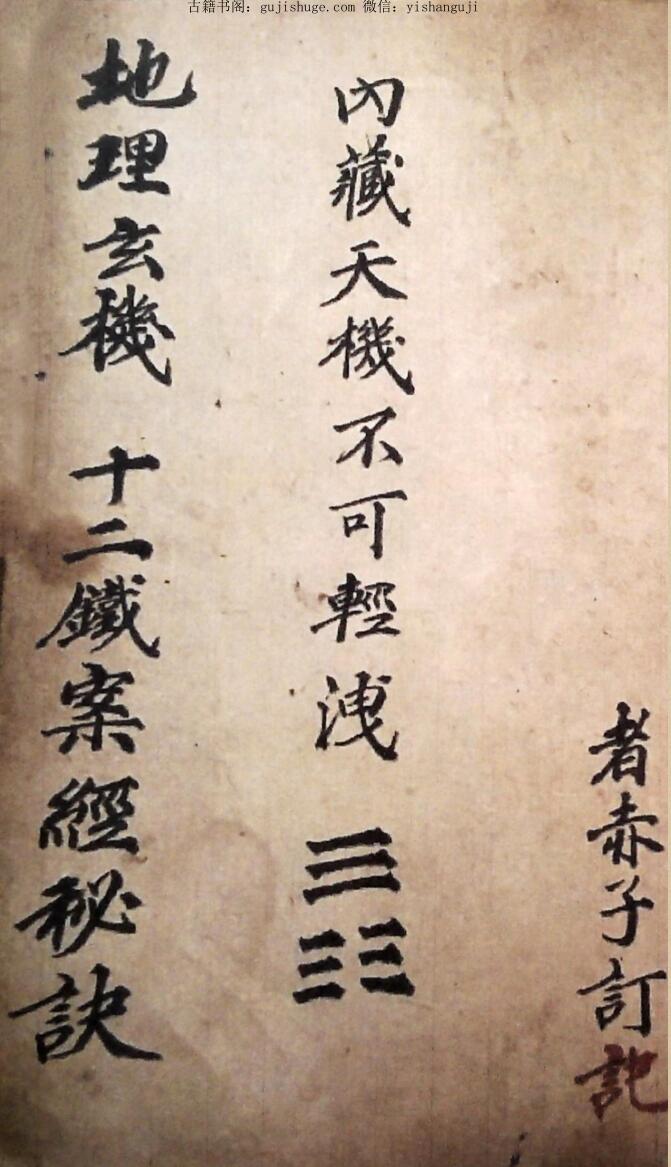 古籍书阁：gujishuge.com 微信：yishanguji
者赤子訂記
內藏天機不可輕洩 ☰☷
地理玄機 十二鐵案經秘訣